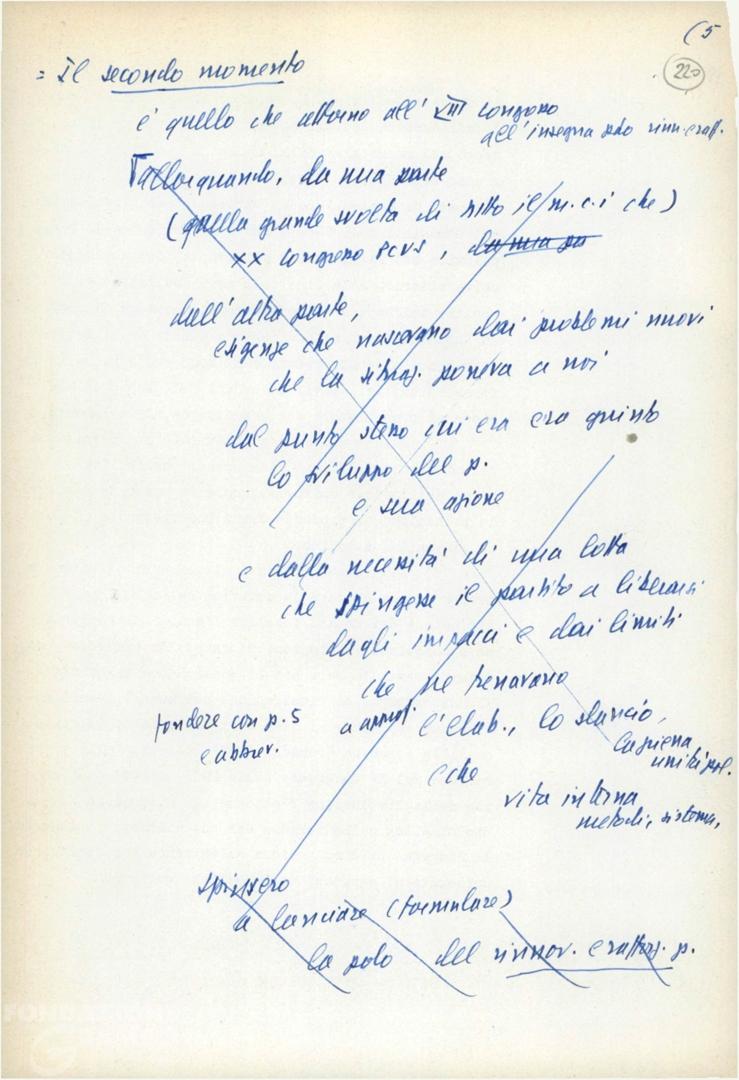 (5
220
= Il secondo momento
è quello che attorno all' VIII congresso
all'insegna rinn. e raff.
Tallorquando, da una parte
(quella grande svolta di tutto il m.c.i che)
XX congresso PCUS, da una pa
dall'altra parte,
esigenze che nascevano dai problemi nuovi
che la situaz. poneva a noi
dal punto stesso cui era era giunto
lo sviluppo del p.
e sua azione
e dalla necessità di una lotta
che spingesse il partito a liberarsi
dagli impacci e dai limiti
che ne frenavano
fondere con p. 5
e abbrev.
l'elab., lo slancio,
la piena
unità pol.
e che
vita interna
metodi, sistema,
spinsero
a lanciare (formulare)
la polo del rinnov. e rafforz. p.
FONDAZIONE
G